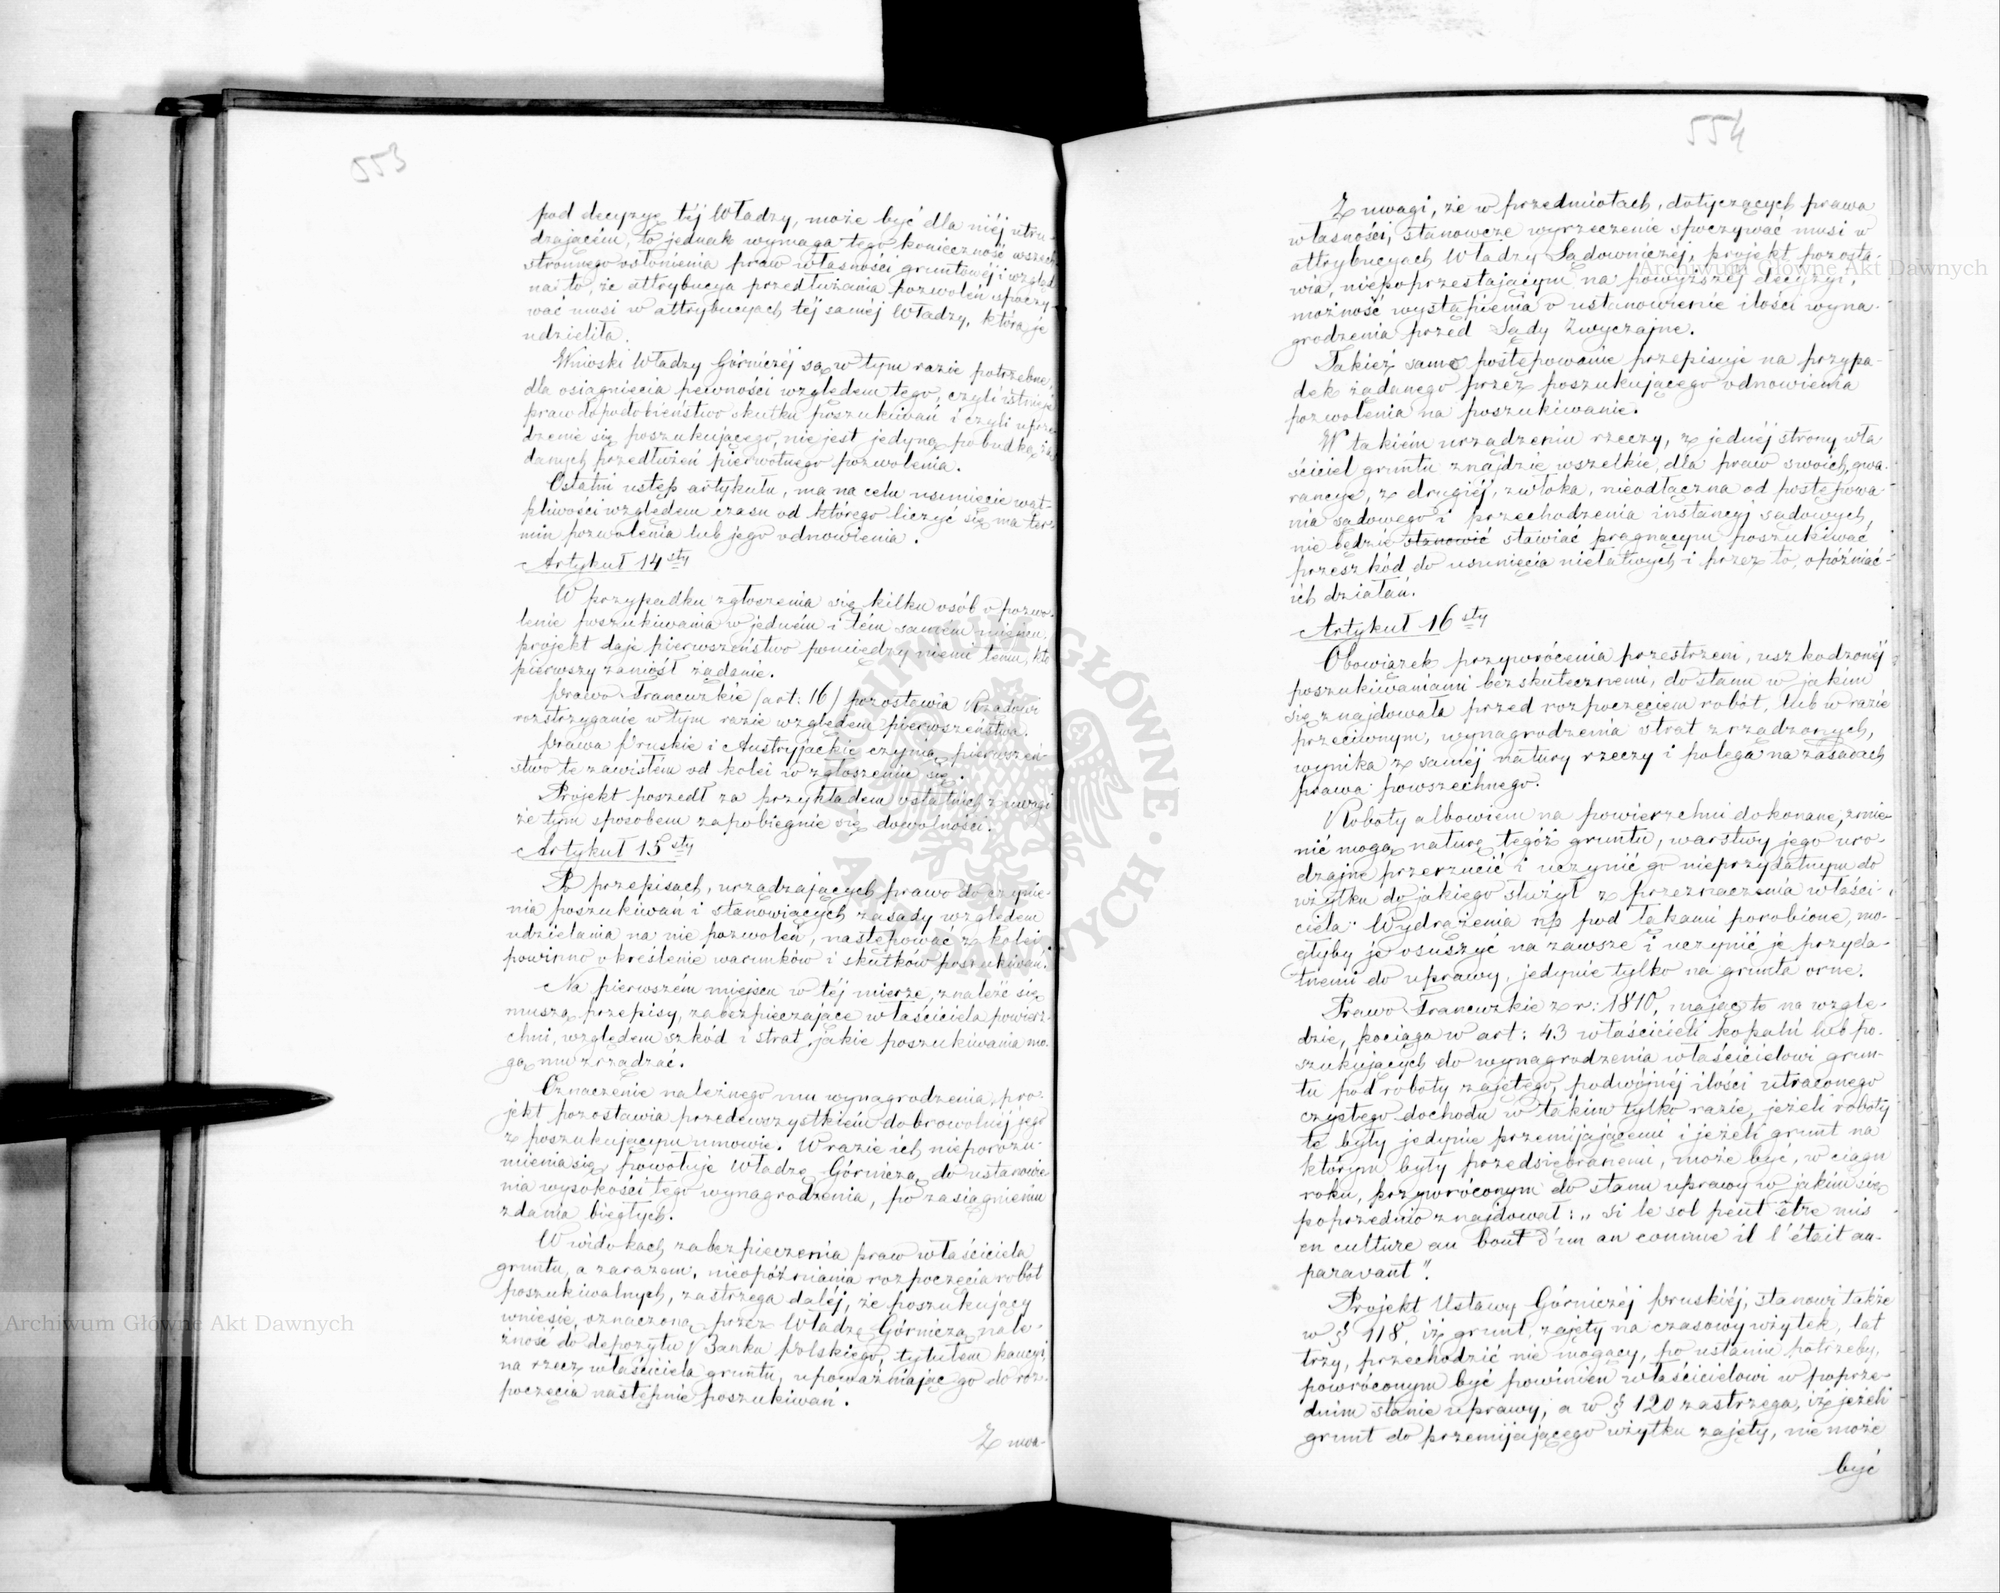 553
pod decyzyę téj Władzy, może być dla niéj utru-
dzającém, to jednak wymaga tego konieczność wszech
stronnego osłonienia praw własności gruntowéj i wzgląd
na to, że attrybucya przedłużania pozwoleń spoczy-
wać musi w attrybucyach téj saméj Władzy, która je
udzieliła.
Wnioski Władzy Górniczéj są w tym razie potrzebne,
dla osiągnięcia pewności względem tego, czyli istnieje
prawdopodobieństwo skutku poszukiwań i czyli uprze-
dzenie się poszukującego, nie jest jedyną pobudką żą-
danych przedłużeń pierwotnego pozwolenia.
Ostatni ustęp artykułu, ma na celu usunięcie wąt-
pliwości względem czasu od którego liczyć się ma ter-
min pozwolenia lub jego odnowienia.
Artykuł 14sty
W przypadku zgłoszenia się kilku osób o pozwo-
lenie poszukiwania w jedném i tém samém miejscu,
projekt daje pierwszeństwo pomiędzy niemi temu, kto
pierwszy zaniósł żądanie.
Prawo Francuzkie (art: 16) pozostawia Rządowi
rozstrzyganie w tym razie względem pierwszeństwa.
Prawa Pruskie i Austryjackie czynią pierwszeń-
stwo te zawisłém od kolei w zgłoszeniu się.
Projekt poszedł za przykładem ostatnich z uwagi
że tym sposobem zapobiegnie się dowolności.
Artykuł 15sty
Po przepisach, urządzających prawo do czynie-
nia poszukiwań i stanowiących zasady względem
udzielania na nie pozwoleń, następować z kolei
powinno określenie warunków i skutków poszukiwań.
Na pierwszém miejscu w téj mierze, znaleźć się
muszą przepisy, zabezpieczające właściciela powierz-
chni, względem szkód i strat, jakie poszukiwania mo-
gą mu zrządzać.
Oznaczenie należnego mu wynagrodzenia, pro-
jekt pozostawia przedewszystkiém dobrowolnéj jego
z poszukującym umowie. W razie ich nieporozu-
mienia się, powołuje Władzę Górniczą do ustanowie
nia wysokości tego wynagrodzenia, po zasiągnieniu
zdania biegłych.
W widokach zabezpieczenia praw właściciela
gruntu, a zarazem, nieopóźniania rozpoczęcia robót
poszukiwalnych, zastrzega daléj, że poszukujący
wniesie, oznaczoną przez Władzę Górniczą nale-
żność do depozytu Banku Polskiego, tytułem kaucyi,
na rzecz właściciela gruntu, upoważniając go do roz-
poczęcia następnie poszukiwań.
Z uwa-
554
Z uwagi, że w przedmiotach, dotyczących prawa
własności, stanowcze wyrzeczenie spoczywać musi w
attrybucyach Władzy Sądowniczéj, projekt pozosta-
wia, niepoprzestającym na powyższéj decyzyi,
możność wystąpienia o ustanowienie ilości wyna-
grodzenia przed Sądy Zwyczajne.
Takież samo postępowanie przepisuje na przypa-
dek żądanego przez poszukującego odnowienia
pozwolenia na poszukiwanie.
W takiém urządzeniu rzeczy, z jednéj strony wła
ściciel gruntu znajdzie wszelkie, dla praw swoich, gwa-
rancye, z drugiéj, zwłoka, nieodłączna od postępowa-
nia sądowego i przechodzenia instancyj sądowych,
nie będzie stanowić stawiać pragnącym poszukiwać
przeszkód do usunięcia niełatwych i przez to, opóźniać
ich działań.
Artykuł 16sty
Obowiązek przywrócenia przestrzeni, uszkodzonéj
poszukiwaniami bezskutecznemi, do stanu w jakim
się znajdowała przed rozpoczęciem robót, lub w razie
przeciwnym, wynagrodzenia strat zrządzonych,
wynika z saméj natury rzeczy i polega na zasadach
prawa powszechnego.
Roboty albowiem na powierzchni dokonane, zmie-
nić mogą naturę tegóż gruntu, warstwy jego uro-
dzajne przerzucić i uczynić go nieprzydatnym do
użytku do jakiego służył z przeznaczenia właści-
ciela. Wydrążenia np pod łąkami porobione, mo-
głyby je osuszyć na zawsze i uczynić je przyda-
tnemi do uprawy, jedynie tylko na grunta orne.
Prawo Francuzkie z r: 1810, mając to na wzglę-
dzie, pociąga w art: 43 właścicieli kopalń lub po-
szukujących do wynagrodzenia właścicielowi grun-
tu pod roboty zajętego, podwójnéj ilości utraconego
czystego dochodu w takim tylko razie, jeżeli roboty
te były jedynie przemijającemi i jeżeli grunt na
którym były przedsiębranemi, może być, w ciągu
roku, przywróconym do stanu uprawy w jakim się
poprzednio znajdował: „ si le sol peut être mis
en culture au bout d'un an comme il l'était au-
paravant".
Projekt Ustawy Górniczéj Pruskiéj, stanowi także
w § 118, iż grunt, zajęty na czasowy użytek, lat
trzy, przechodzić nie mogący, po ustaniu potrzeby,
powróconym być powinien właścicielowi w poprze-
dnim stanie uprawy; a w § 120 zastrzega, iż jeżeli
grunt do przemijającego użytku zajęty, nie może
być
Archiwum Główne Akt Dawnych
Archiwum Główne Akt Dawnych
ARCHIWUM GŁÓWNE AKT DAWNYCH